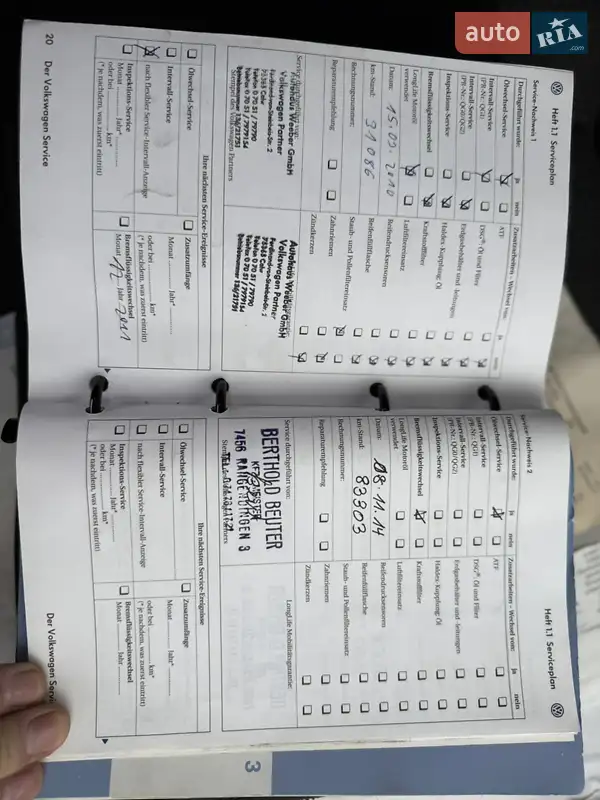 auto RIA .com
Heft 1.1 Serviceplan
Service-Nachweis 1
Durchgeführt wurde: ja nein
Ölwechsel-Service
Intervall-Service
(PR-Nr.: QG1)
Intervall-Service
(PR-Nr.: QG0/QG2)
Inspektions-Service
Bremsflüssigkeitswechsel
LongLife Motoröl
verwendet
Datum: 15.09.2010
km-Stand: 31086
Rechnungsnummer:
Reparaturempfehlung
Service durchgeführt von:
Autohaus Weeber GmbH
Volkswagen Partner
Ferdinand-von-Steinbeis-Str. 2
75365 Calw
Telefon 0 70 51 / 79790
Telefax 0 70 51 / 7979154
Stempel des Volkswagen Partners
Zusatzarbeiten - Wechsel von: ja nein
ATF
DSG®: Öl und Filter
Erdgasbehälter und -leitungen
Haldex-Kupplung: Öl
Kraftstofffilter
Luftfiltereinsatz
Reifendrucksensoren
Reifenfüllflasche
Staub- und Pollenfiltereinsatz
Zahnriemen
Zündkerzen
Autohaus Weeber GmbH
Volkswagen Partner
Ferdinand-von-Steinbeis-Str. 2
75365 Calw
Telefon 0 70 51 / 79790
Telefax 0 70 51 / 7979154
Ihre nächsten Service-Ereignisse
Ölwechsel-Service
Intervall-Service
nach flexibler Service-Intervall-Anzeige
Inspektions-Service
Monat Jahr*
oder bei km*
(* je nachdem, was zuerst eintritt)
Zusatzumfänge
Monat Jahr*
oder bei km*
(* je nachdem, was zuerst eintritt)
Bremsflüssigkeitswechsel
Monat 12 Jahr 2011
20 Der Volkswagen Service
Heft 1.1 Serviceplan
Service-Nachweis 2
Durchgeführt wurde: ja nein
Ölwechsel-Service
Intervall-Service
(PR-Nr.: QG1)
Intervall-Service
(PR-Nr.: QG0/QG2)
Inspektions-Service
Bremsflüssigkeitswechsel
LongLife Motoröl
verwendet
Datum: 08.11.14
km-Stand: 83803
Rechnungsnummer:
Reparaturempfehlung
Service durchgeführt von:
BERTHOLD BEUTER
7456 RANGENDINGEN 3
Zusatzarbeiten - Wechsel von: ja nein
ATF
DSG®: Öl und Filter
Erdgasbehälter und -leitungen
Haldex-Kupplung: Öl
Kraftstofffilter
Luftfiltereinsatz
Reifendrucksensoren
Reifenfüllflasche
Staub- und Pollenfiltereinsatz
Zahnriemen
Zündkerzen
LongLife Mobilitätsgarantie:
Ihre nächsten Service-Ereignisse
Ölwechsel-Service
Intervall-Service
nach flexibler Service-Intervall-Anzeige
Inspektions-Service
Monat Jahr*
oder bei km*
(* je nachdem, was zuerst eintritt)
Zusatzumfänge
Monat Jahr*
oder bei km*
(* je nachdem, was zuerst eintritt)
Bremsflüssigkeitswechsel
Monat Jahr
Der Volkswagen
3